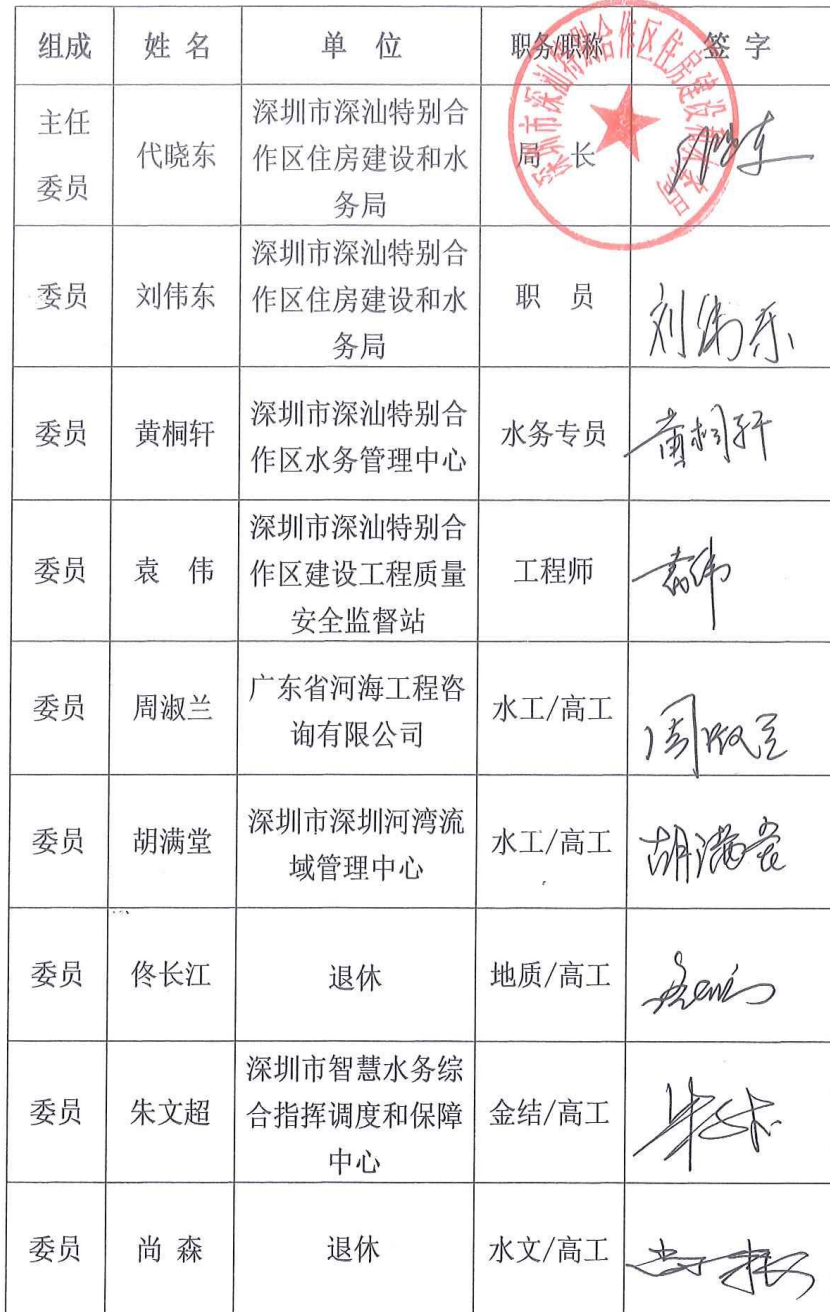 组成 姓 名 单 位 职务/职称 签 字
深圳市深汕特别合作区住房建设和水务局
主任
委员
代晓东
深圳市深汕特别合
作区住房建设和水
务局
局 长
委员
刘伟东
深圳市深汕特别合
作区住房建设和水
务局
职 员
刘伟东
委员
黄桐轩
深圳市深汕特别合
作区水务管理中心
水务专员
黄桐轩
委员
袁 伟
深圳市深汕特别合
作区建设工程质量
安全监督站
工程师
袁伟
委员
周淑兰
广东省河海工程咨
询有限公司
水工/高工
周淑兰
委员
胡满堂
深圳市深圳河湾流
域管理中心
水工/高工
胡满堂
委员
佟长江
退休
地质/高工
委员
朱文超
深圳市智慧水务综
合指挥调度和保障
中心
金结/高工
委员
尚 森
退休
水文/高工